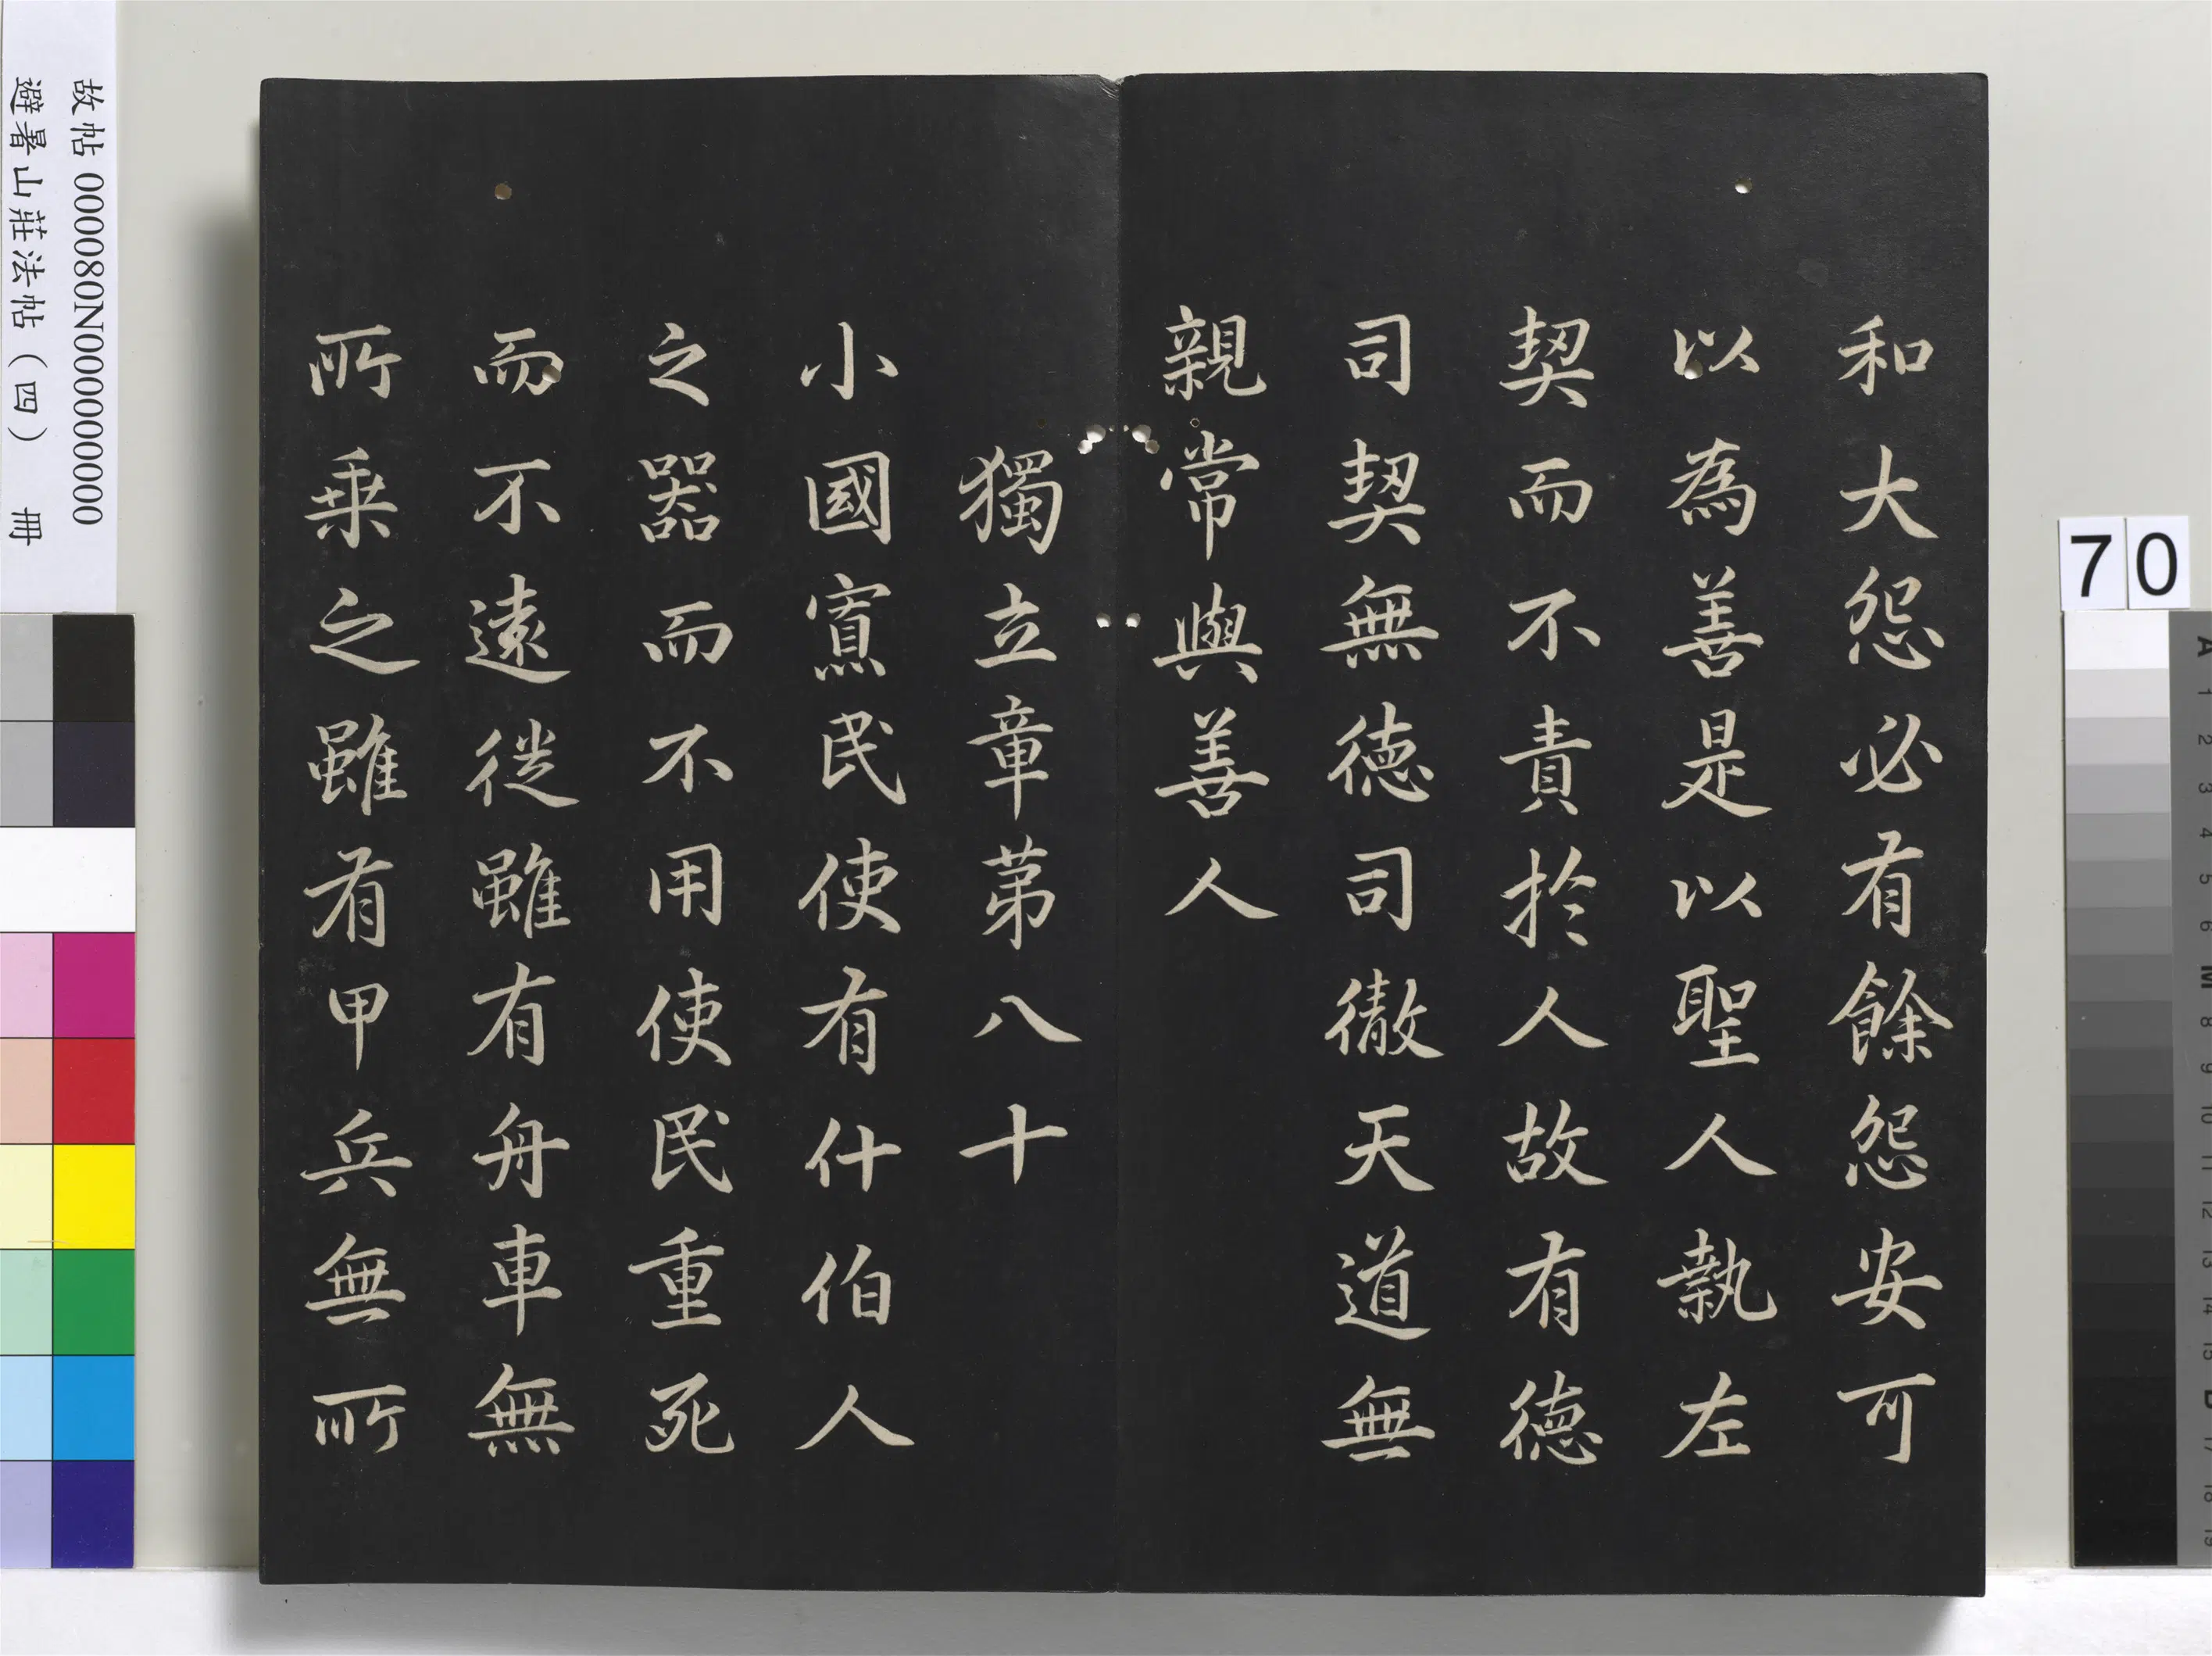 和大怨必有餘怨安可
以為善是以聖人執左
契而不責於人故有德
司契無德司徹天道無
親常與善人
獨立章第八十
小國寡民使有什伯人
之器而不用使民重死
而不遠徙雖有舟車無
所乗之雖有甲兵無所
故帖 000080N000000000
避暑山莊法帖（四） 冊
70
A 1 2 3 4 5 6 M 8 9 10 11 12 13 14 15 B 17 18 19